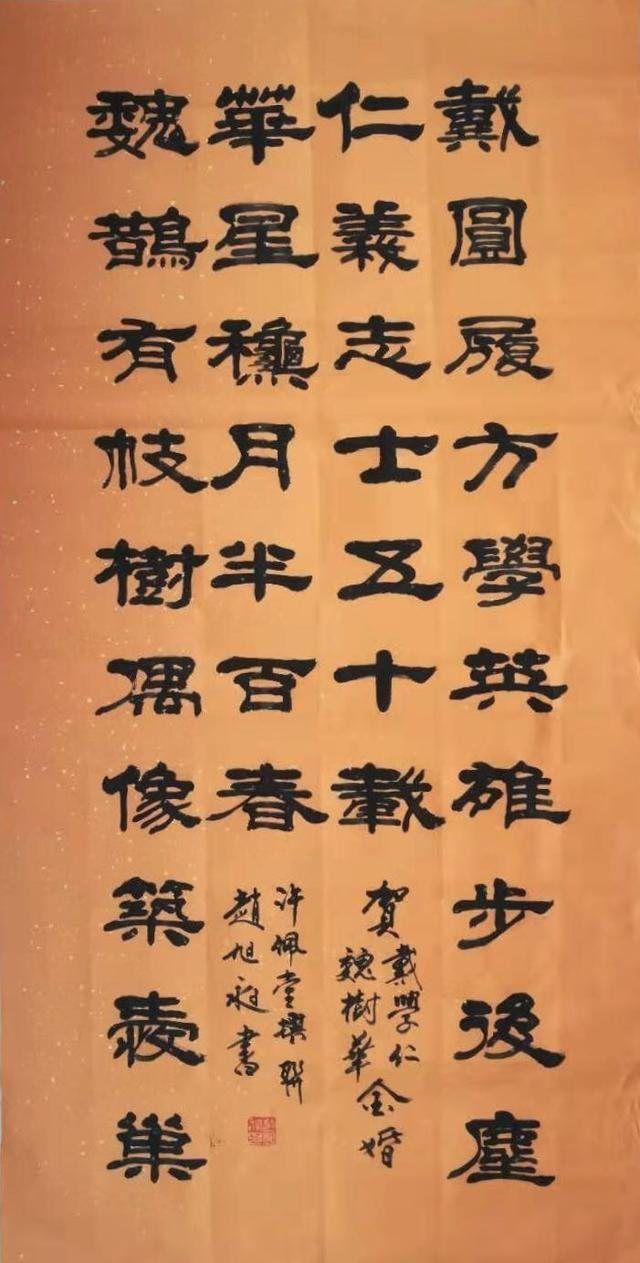 戴圓履方學英雄步後塵
仁義志士五十載
賀戴學仁
魏樹華金婚
魏鵲有枝樹偶像築愛巢
華星龝月半百春
許佩堂撰聯
趙旭書